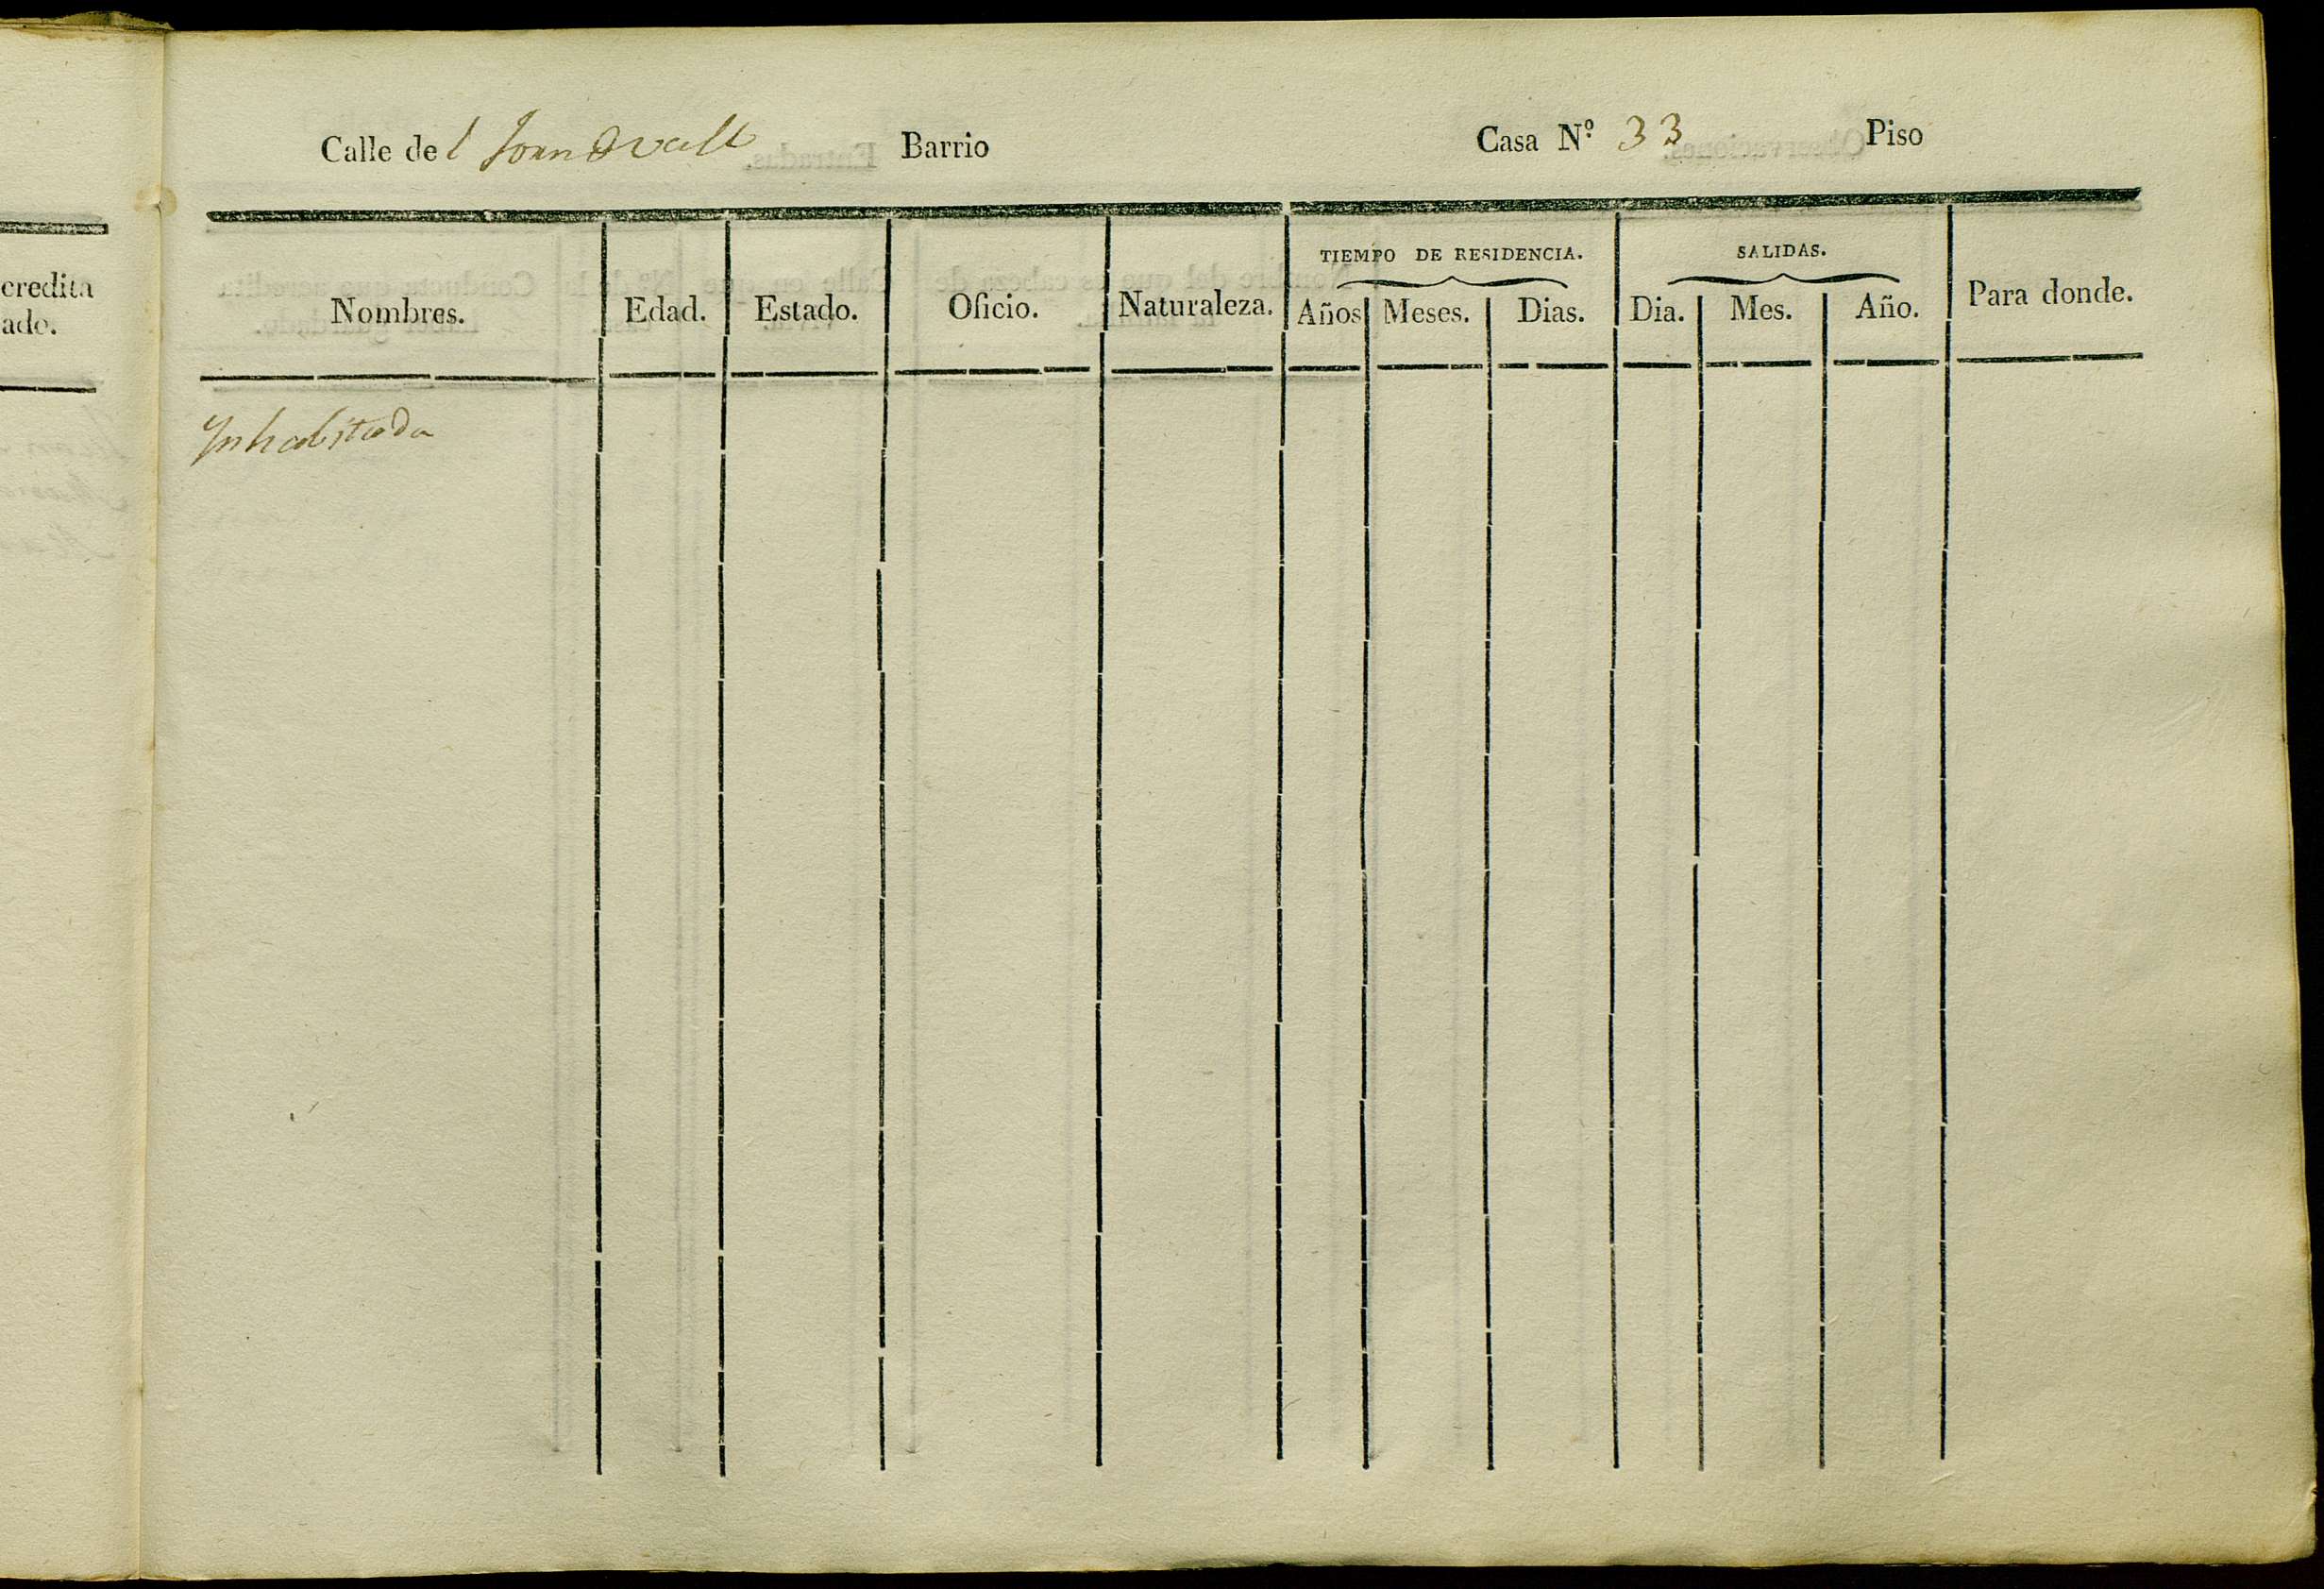 Calle del Barrio Casa N.º 33 Piso
credita
ado.
TIEMPO DE RESIDENCIA. SALIDAS.
Nombres. Edad. Estado. Oficio. Naturaleza. Años Meses. Dias. Dia. Mes. Año. Para donde.
Inhabitada